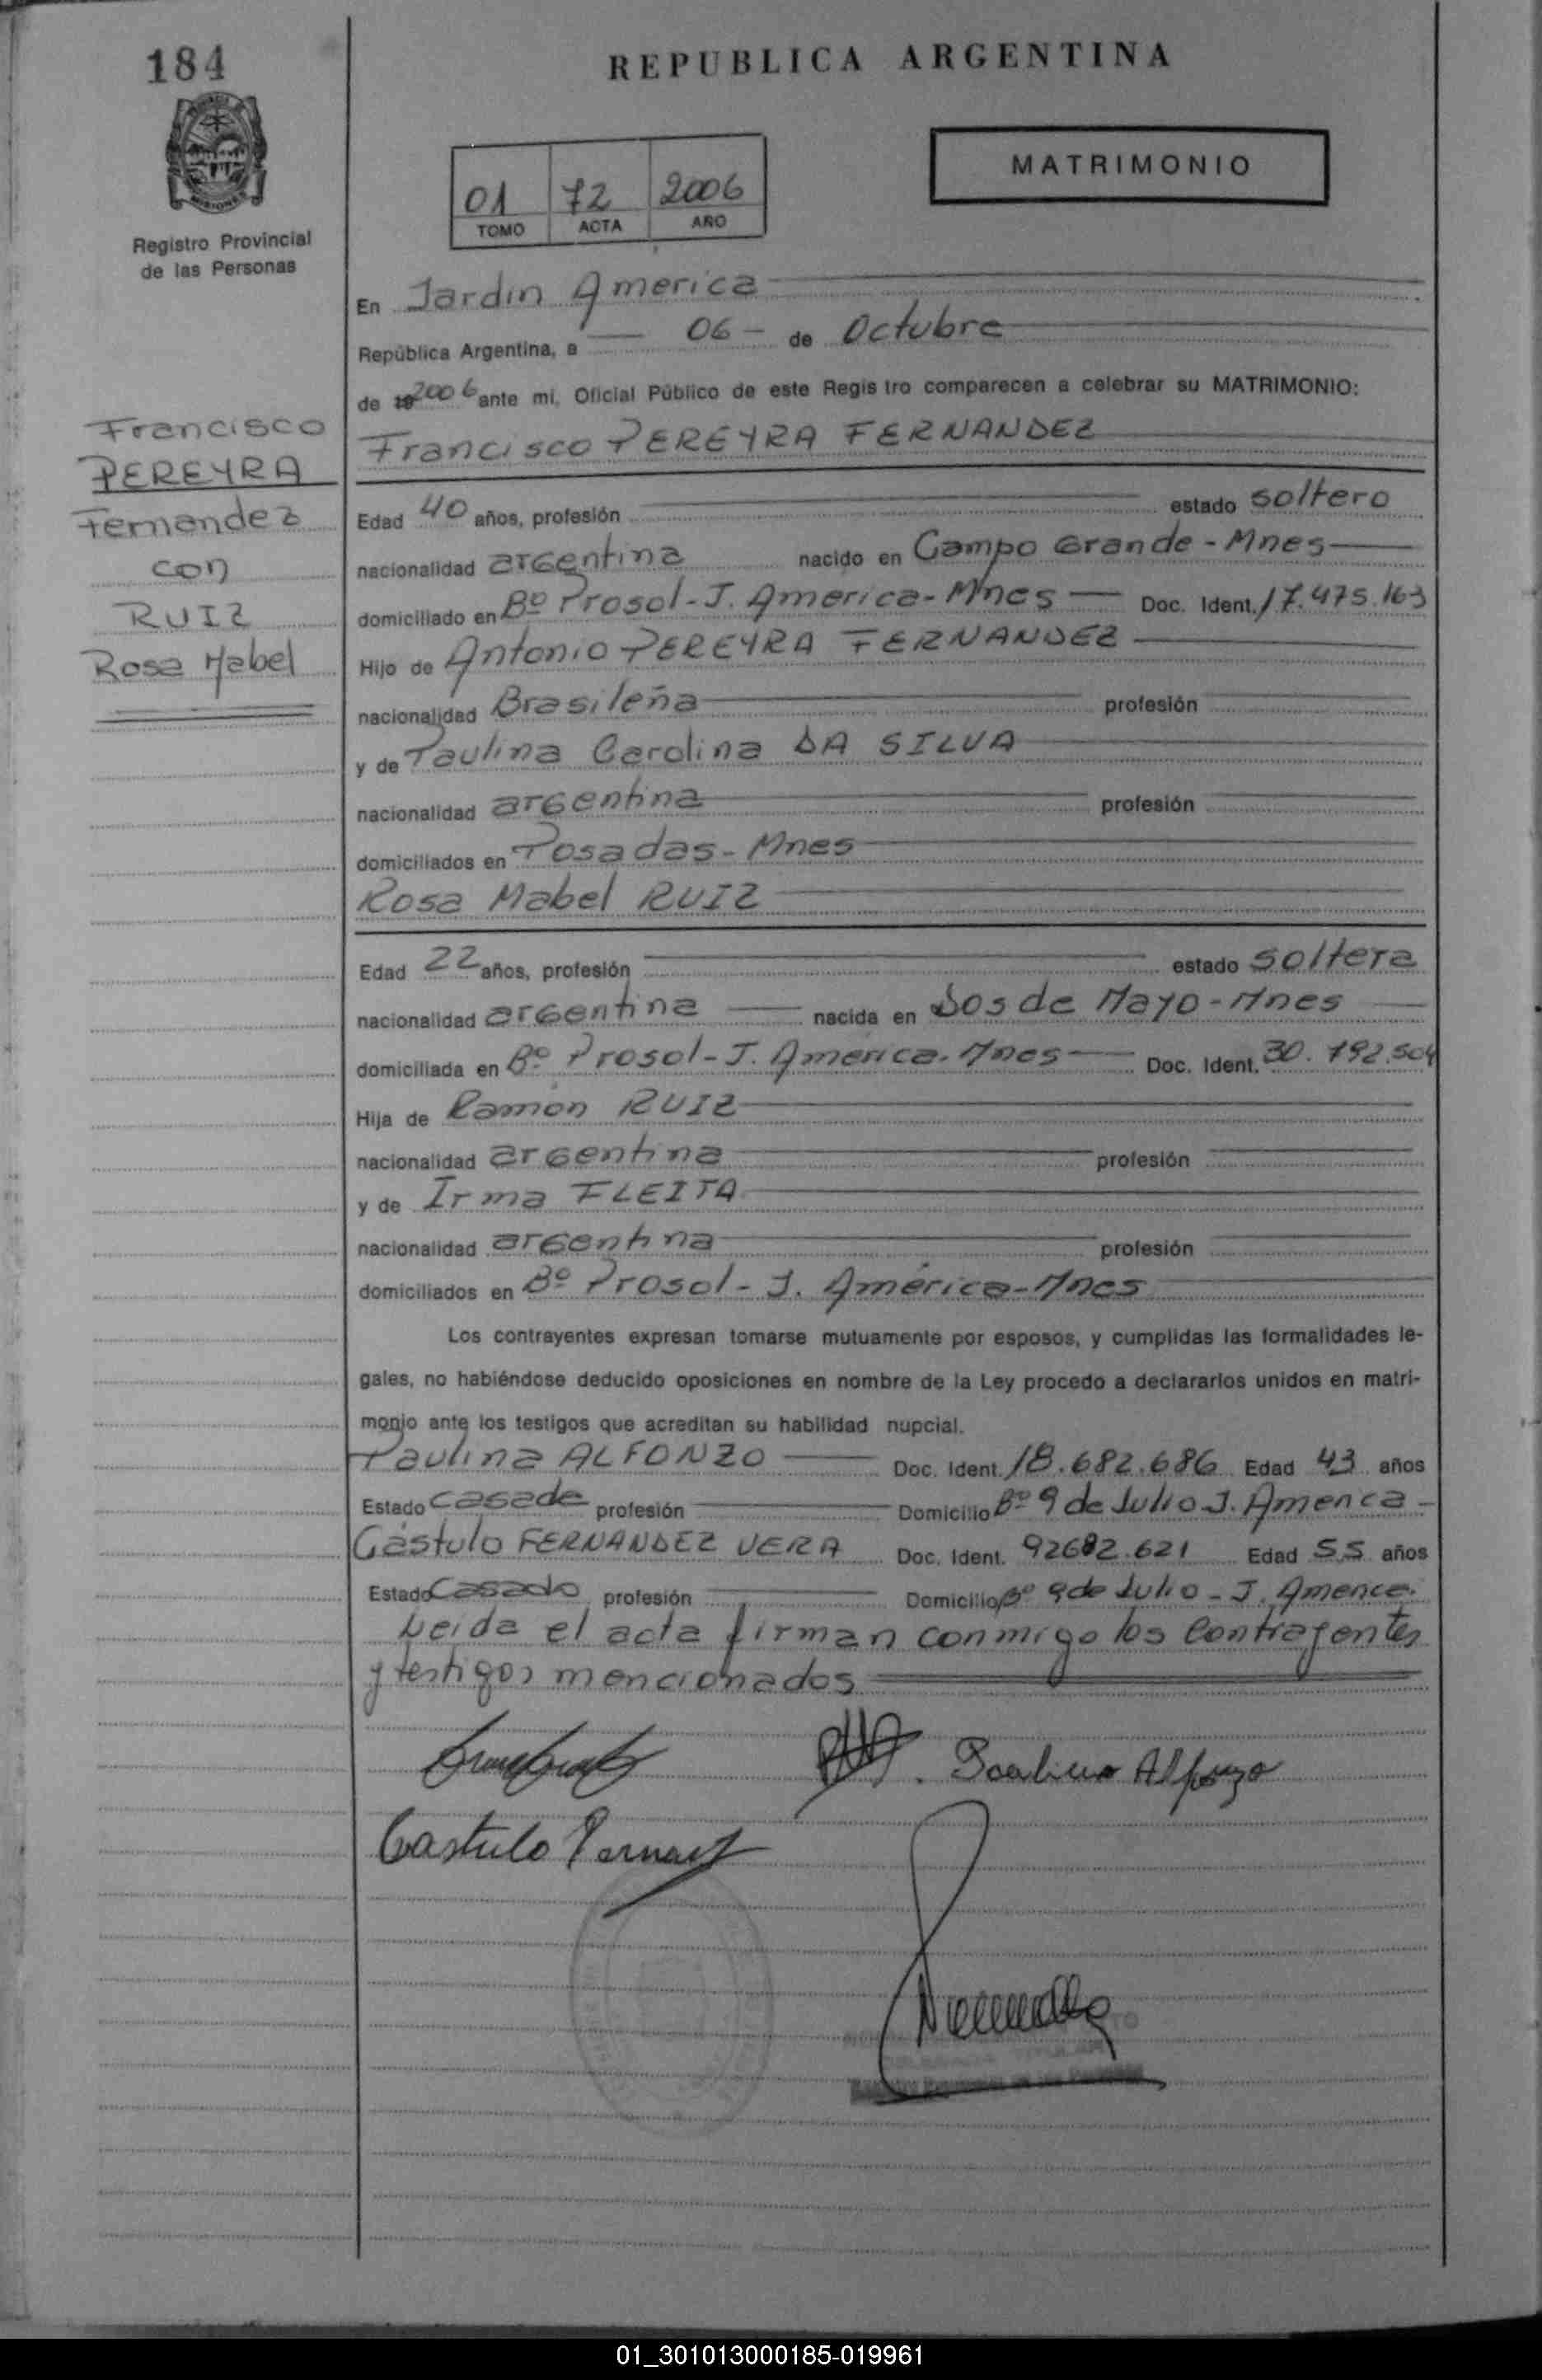 184
REPUBLICA ARGENTINA
MISIONES
Registro Provincial
de las Personas
01 72 2006
TOMO ACTA AÑO
MATRIMONIO
En Jardin America
República Argentina, a 06 - de Octubre
de 19 2006 ante mi, Oficial Público de este Regis tro comparecen a celebrar su MATRIMONIO:
Francisco
PEREYRA
Fernandez
con
RUIZ
Rosa Mabel
Francisco PEREYRA FERNANDEZ
Edad 40 años, profesión estado soltero
nacionalidad argentina nacido en Campo Grande - Mnes
domiciliado en Bº Prosol - J. America - Mnes Doc. Ident. 17.475.163
Hijo de Antonio PEREYRA FERNANDEZ
nacionalidad Brasileña profesión
y de Paulina Carolina DA SILVA
nacionalidad argentina profesión
domiciliados en Posadas - Mnes
Rosa Mabel RUIZ
Edad 22 años, profesión estado soltera
nacionalidad argentina nacida en Dos de Mayo - Mnes
domiciliada en Bº Prosol - J. America - Mnes Doc. Ident. 30.792.504
Hija de Ramón RUIZ
nacionalidad argentina profesión
y de Irma FLEITA
nacionalidad argentina profesión
domiciliados en Bº Prosol - J. América - Mnes
Los contrayentes expresan tomarse mutuamente por esposos, y cumplidas las formalidades le-
gales, no habiéndose deducido oposiciones en nombre de la Ley procedo a declararlos unidos en matri-
monio ante los testigos que acreditan su habilidad nupcial.
Paulina ALFONZO Doc. Ident. 18.682.686 Edad 43 años
Estado casada profesión Domicilio Bº 9 de Julio J. America
Cástulo FERNANDEZ VERA Doc. Ident. 92682.621 Edad 55 años
Estado Casado profesión Domicilio Bº 9 de Julio - J. America
Leida el acta firman conmigo los Contrayentes
y testigos mencionados
Paulina Alfonzo
Castulo Fernand
01_301013000185-019961